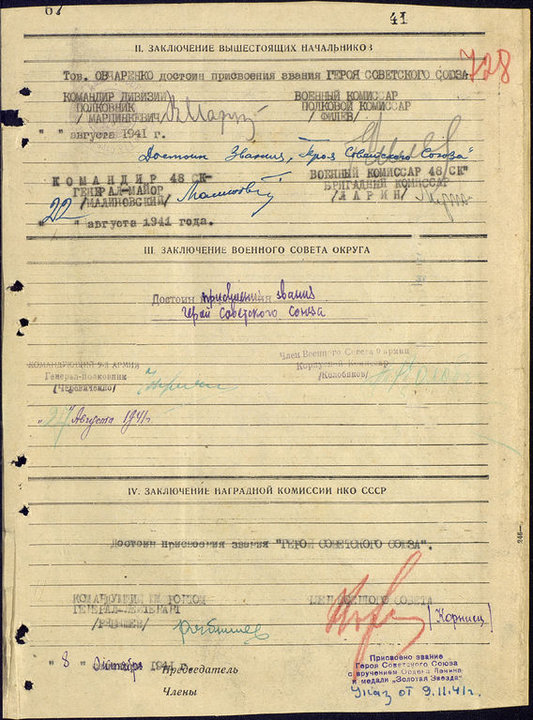 67
41
II. ЗАКЛЮЧЕНИЕ ВЫШЕСТОЯЩИХ НАЧАЛЬНИКОВ
728
Тов. ОВЧАРЕНКО достоин присвоения звания ГЕРОЯ СОВЕТСКОГО СОЮЗА
КОМАНДИР ДИВИЗИИ
ПОЛКОВНИК
/МАРЦИНКЕВИЧ/
" " августа 1941 г.
ВОЕННЫЙ КОМИССАР
ПОЛКОВОЙ КОМИССАР
/ФИЛЕВ/
Достоин звания, "Героя Советского Союза"
КОМАНДИР 48 СК-
ГЕНЕРАЛ-МАЙОР
/МАЛИНОВСКИЙ/
"22" августа 1941 года.
ВОЕННЫЙ КОМИССАР 48 СК"
БРИГАДНЫЙ КОМИССАР
/ЛАРИН/
III. ЗАКЛЮЧЕНИЕ ВОЕННОГО СОВЕТА ОКРУГА
Достоин присвоения звания
Герой Советского Союза
КОМАНДУЮЩИЙ 9-й АРМИИ
Генерал-полковник
(Черевиченко)
Член Военного Совета 9 армии
Корпусной Комиссар
/Колобяков/
"27" Августа 1941г
IV. ЗАКЛЮЧЕНИЕ НАГРАДНОЙ КОМИССИИ НКО СССР
Достоин присвоения звания "ГЕРОЙ СОВЕТСКОГО СОЮЗА".
КОМАНДУЮЩИЙ ЮЖ ФРОНТОМ
ГЕНЕРАЛ-ЛЕЙТЕНАНТ
/РЯБЫШЕВ/
Рябышев
ЧЛЕН ВОЕННОГО СОВЕТА
Корниец
"8" октября 1941 г.
Председатель
Члены
Присвоено звание
Героя Советского Союза
с вручением Ордена Ленина
и медали „Золотая Звезда"
Указ от 9.11.41г.